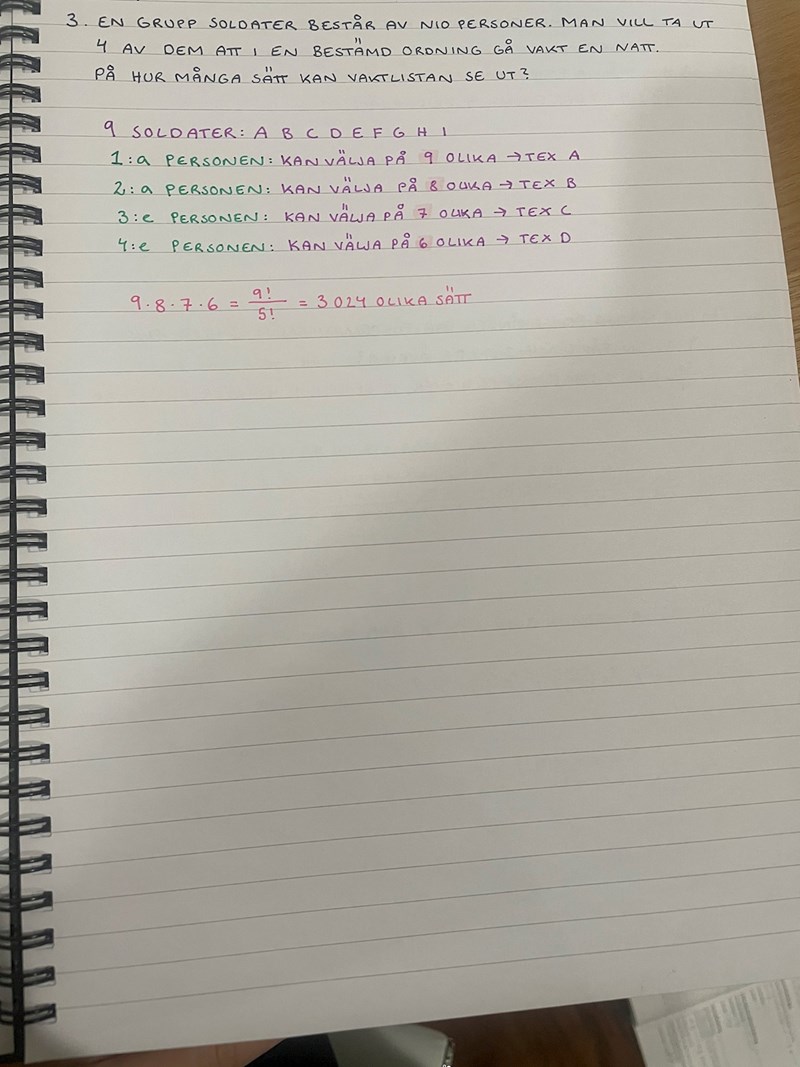 3. EN GRUPP SOLDATER BESTÅR AV NIO PERSONER. MAN VILL TA UT
4 AV DEM ATT I EN BESTÄMD ORDNING GÅ VAKT EN NATT.
PÅ HUR MÅNGA SÄTT KAN VAKTLISTAN SE UT?
9 SOLDATER: A B C D E F G H I
1:a PERSONEN: KAN VÄLJA PÅ 9 OLIKA → TEX A
2:a PERSONEN: KAN VÄLJA PÅ 8 OLIKA → TEX B
3:e PERSONEN: KAN VÄLJA PÅ 7 OLIKA → TEX C
4:e PERSONEN: KAN VÄLJA PÅ 6 OLIKA → TEX D
9·8·7·6 = 9!/5! = 3024 OLIKA SÄTT